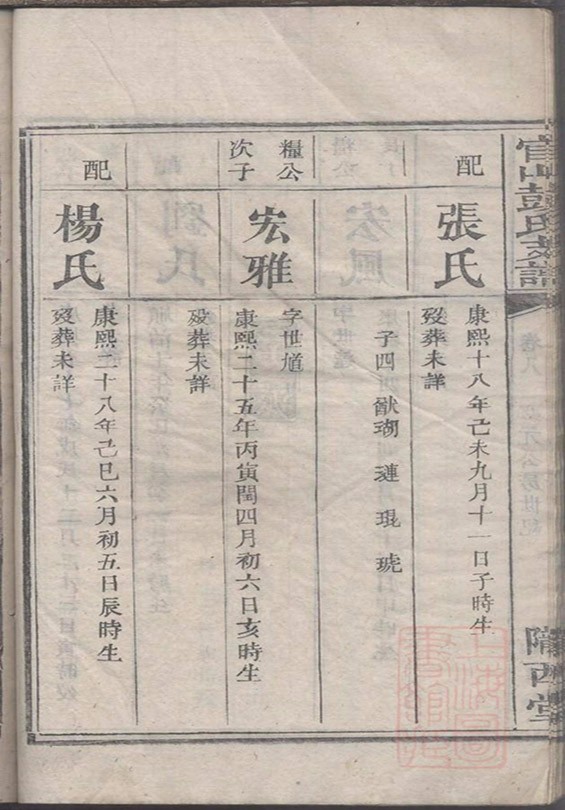 官山彭氏支譜
卷八
隴西堂
配
張氏
康熙十八年己未九月十一日子時生
歿葬未詳
子四 猷瑚 璉 琨 琥
糧公
次子
宏雅
字世馗
康熙二十五年丙寅閏四月初六日亥時生
歿葬未詳
配
楊氏
康熙二十八年己巳六月初五日辰時生
歿葬未詳